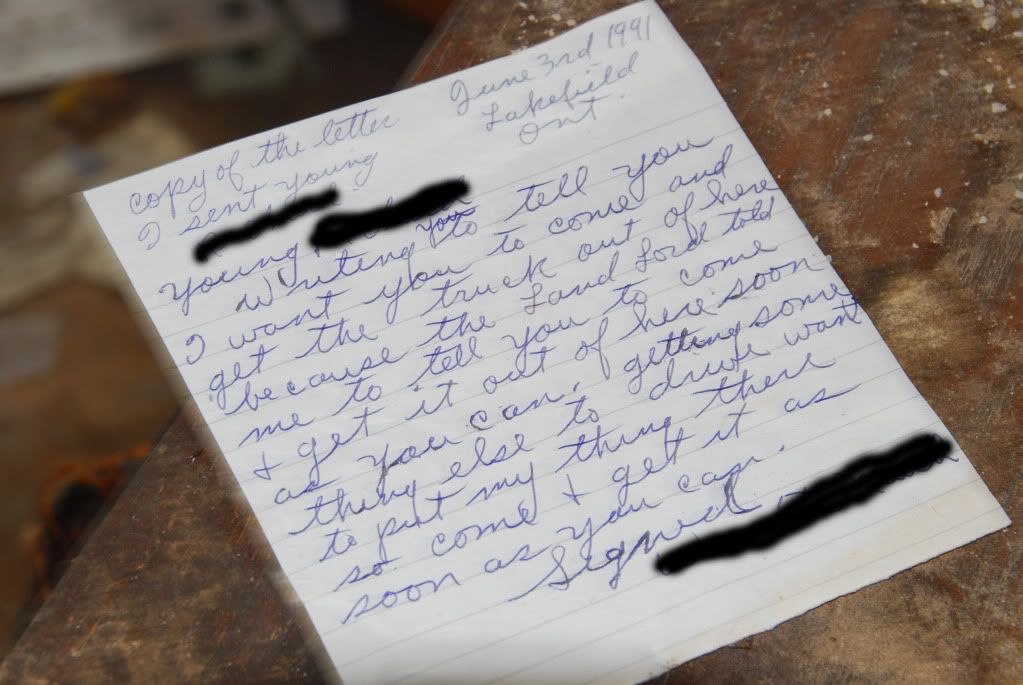 June 3rd 1991
Lakefield
Ont.
copy of the letter
I sent young
young
Writing you to tell you
I want you to come and
get the truck out of here
because the Land Lord told
me to tell you to come
& get it out of here soon
as you can, getting some
thing else to drive want
to put my thing there
so come & get it as
soon as you can.
Signed